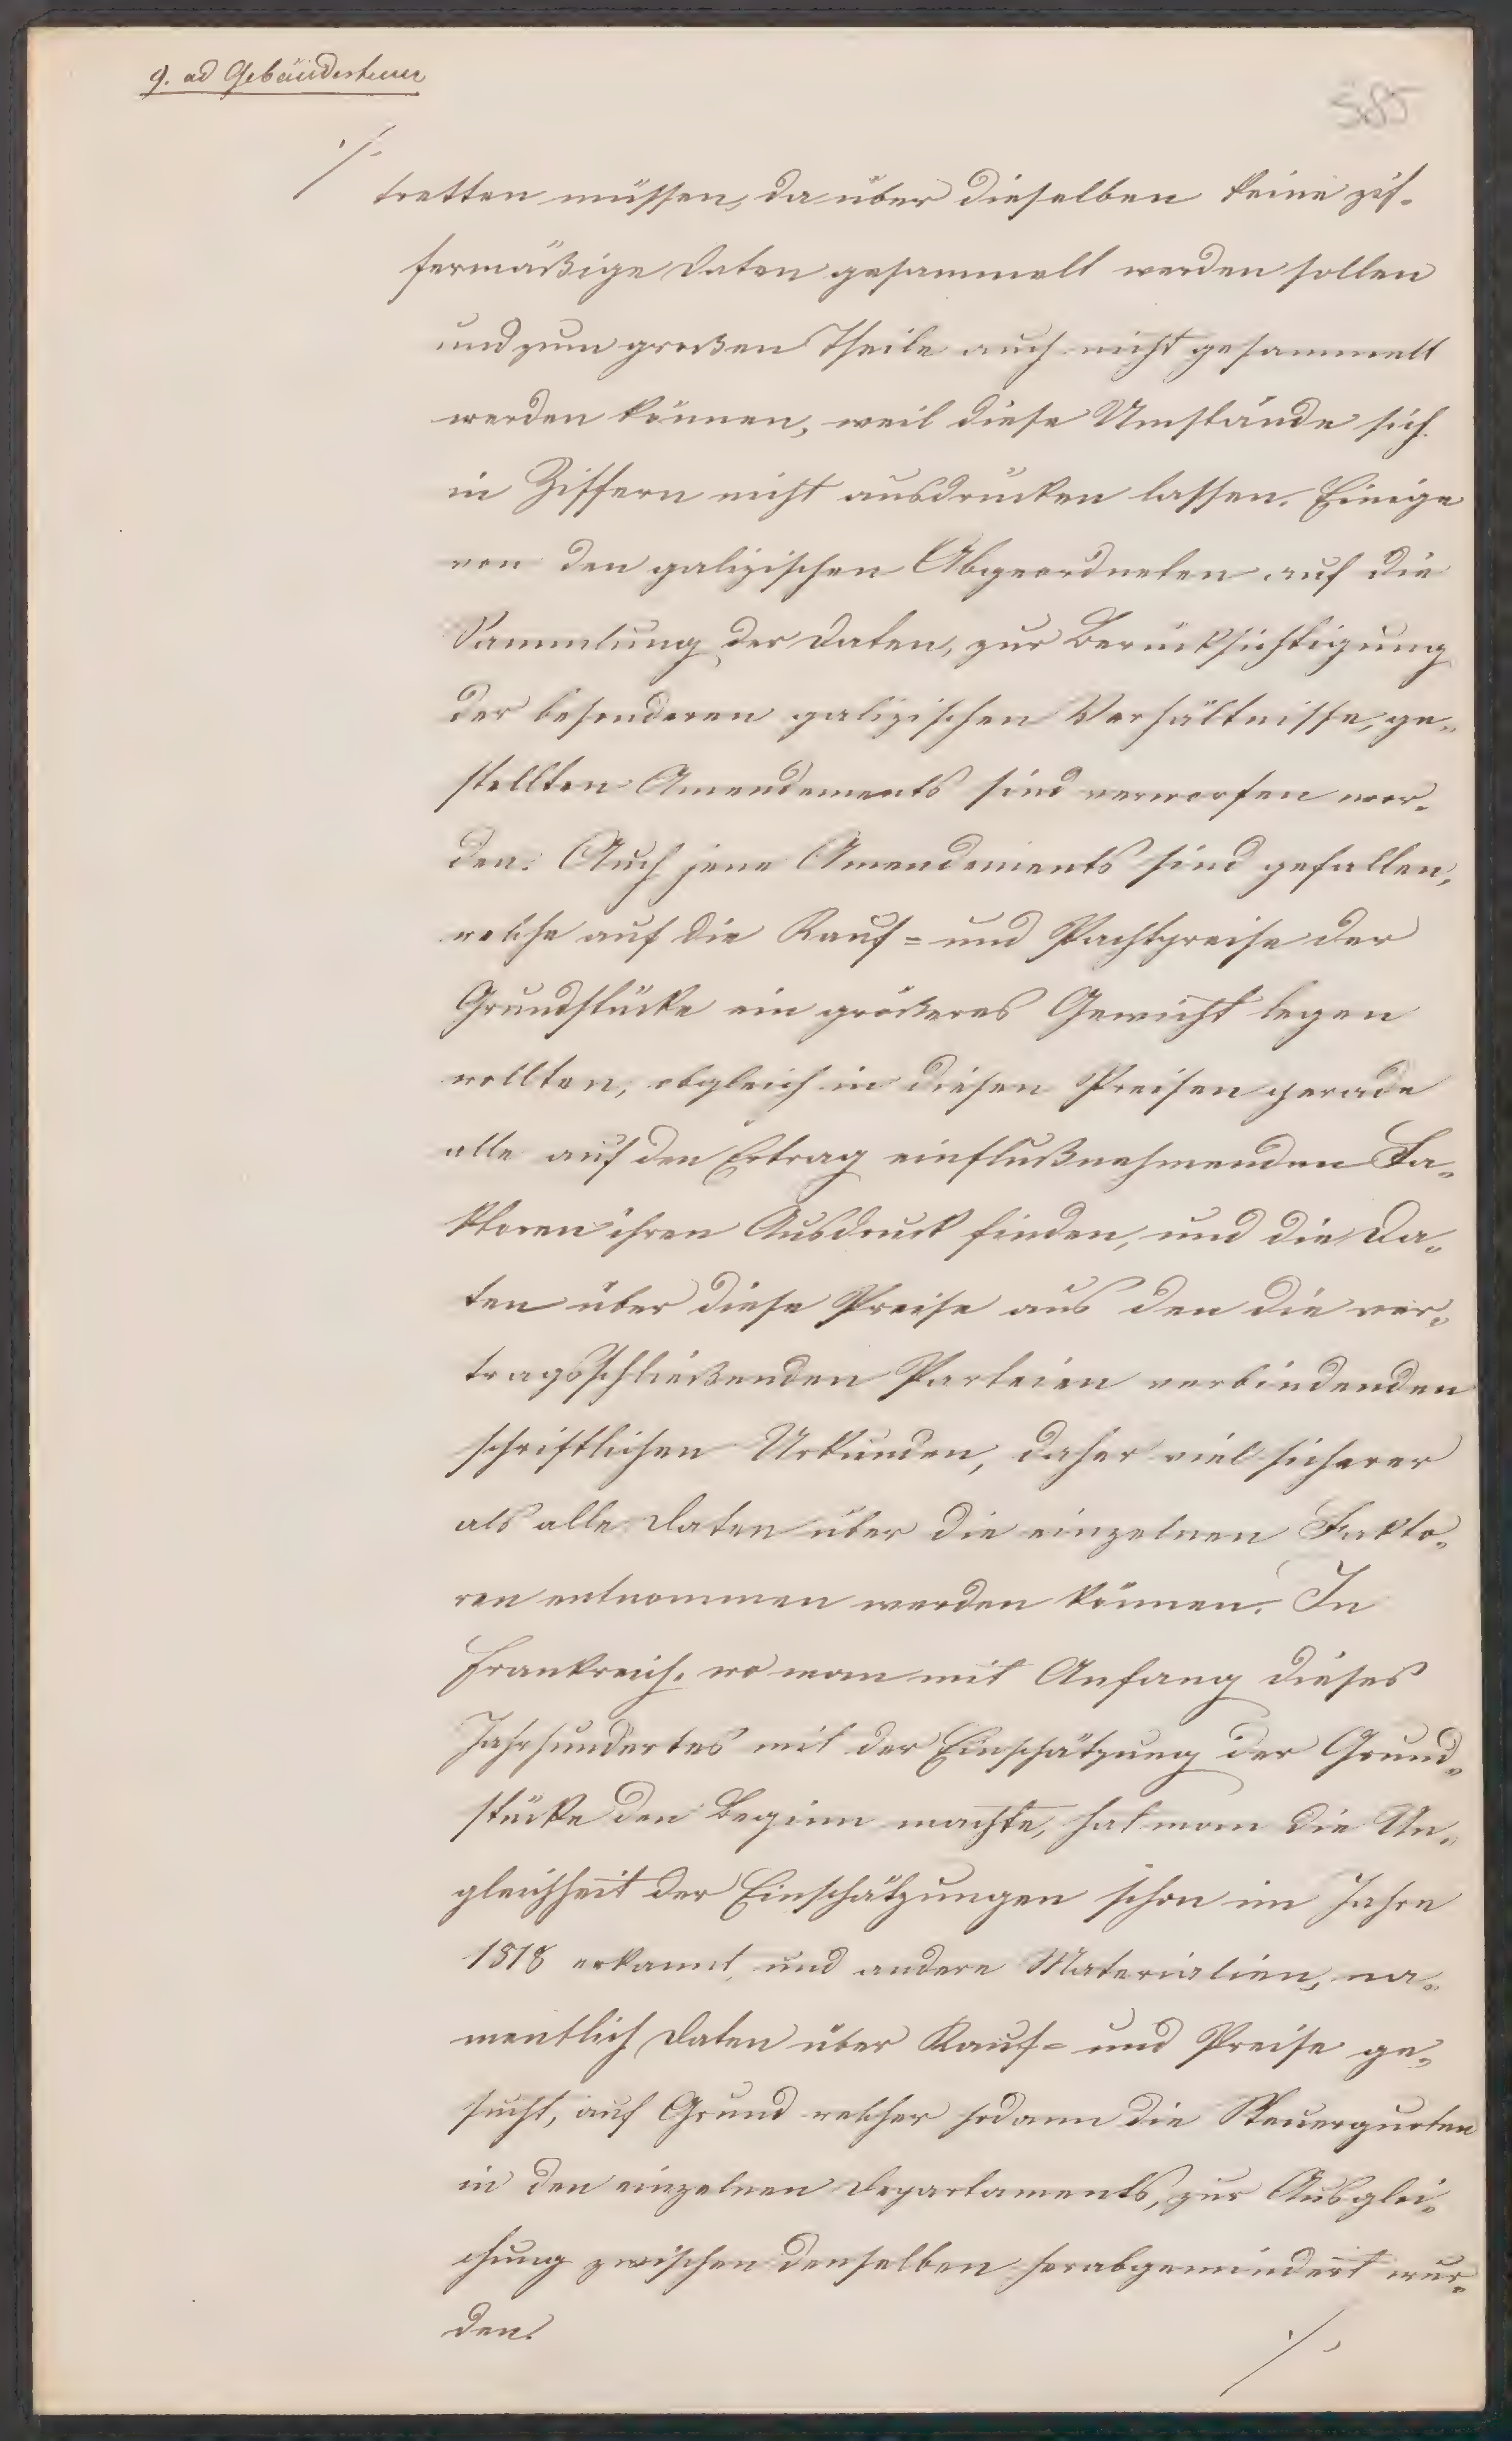 9. ad Gebäudesteuer
585
./.
tretten müssen, da über dieselben keine zif-
fermäßige Daten gesammelt werden sollen
und zum großen Theile auch nicht gesammelt
werden können, weil diese Umstände sich
in Ziffern nicht ausdrücken lassen. Einige
von den galizischen Abgeordneten auf die
Sammlung der Daten, zur Berücksichtigung
der besonderen galizischen Verhältnisse, ge-
stellten Amendements sind verworfen wor-
den. Auch jene Amendements sind gefallen,
welche auf die Kauf- und Pachtpreise der
Grundstücke ein größeres Gewicht legen
wollten, obgleich in diesen Preisen gerade
alle auf den Ertrag einflußnehmenden Fa-
ktoren ihren Ausdruck finden, und die Da-
ten über diese Preise aus den die ver-
tragsschließenden Parteien verbindenden
schriftlichen Urkunden, daher viel sicherer
als alle Daten über die einzelnen Fakto-
ren entnommen werden können. In
Frankreich, wo man mit Anfang dieses
Jahrhundertes mit der Einschätzung der Grund-
stücke den Beginn machte, hat man die Un-
gleichheit der Einschätzungen schon im Jahre
1818 erkannt, und andere Materialien, na-
mentlich Daten über Kauf- und Preise ge-
sucht, auf Grund welcher sodann die Steuerquoten
in den einzelnen Departaments, zur Ausglei-
chung zwischen denselben herabgemindert wur-
den.
./.